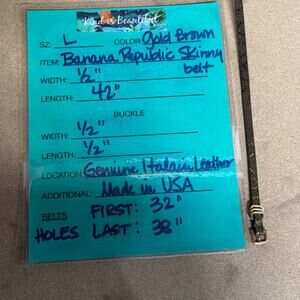 Kind is Beautiful
SZ: L COLOR: Gold Brown
ITEM: Banana Republic Skinny
belt
WIDTH: 1/2"
LENGTH: 42"
BUCKLE
WIDTH: 1/2"
LENGTH: 1/2"
LOCATION: Genuine Italain Leather
ADDITIONAL: Made in USA
BELTS FIRST: 32"
HOLES LAST: 38"